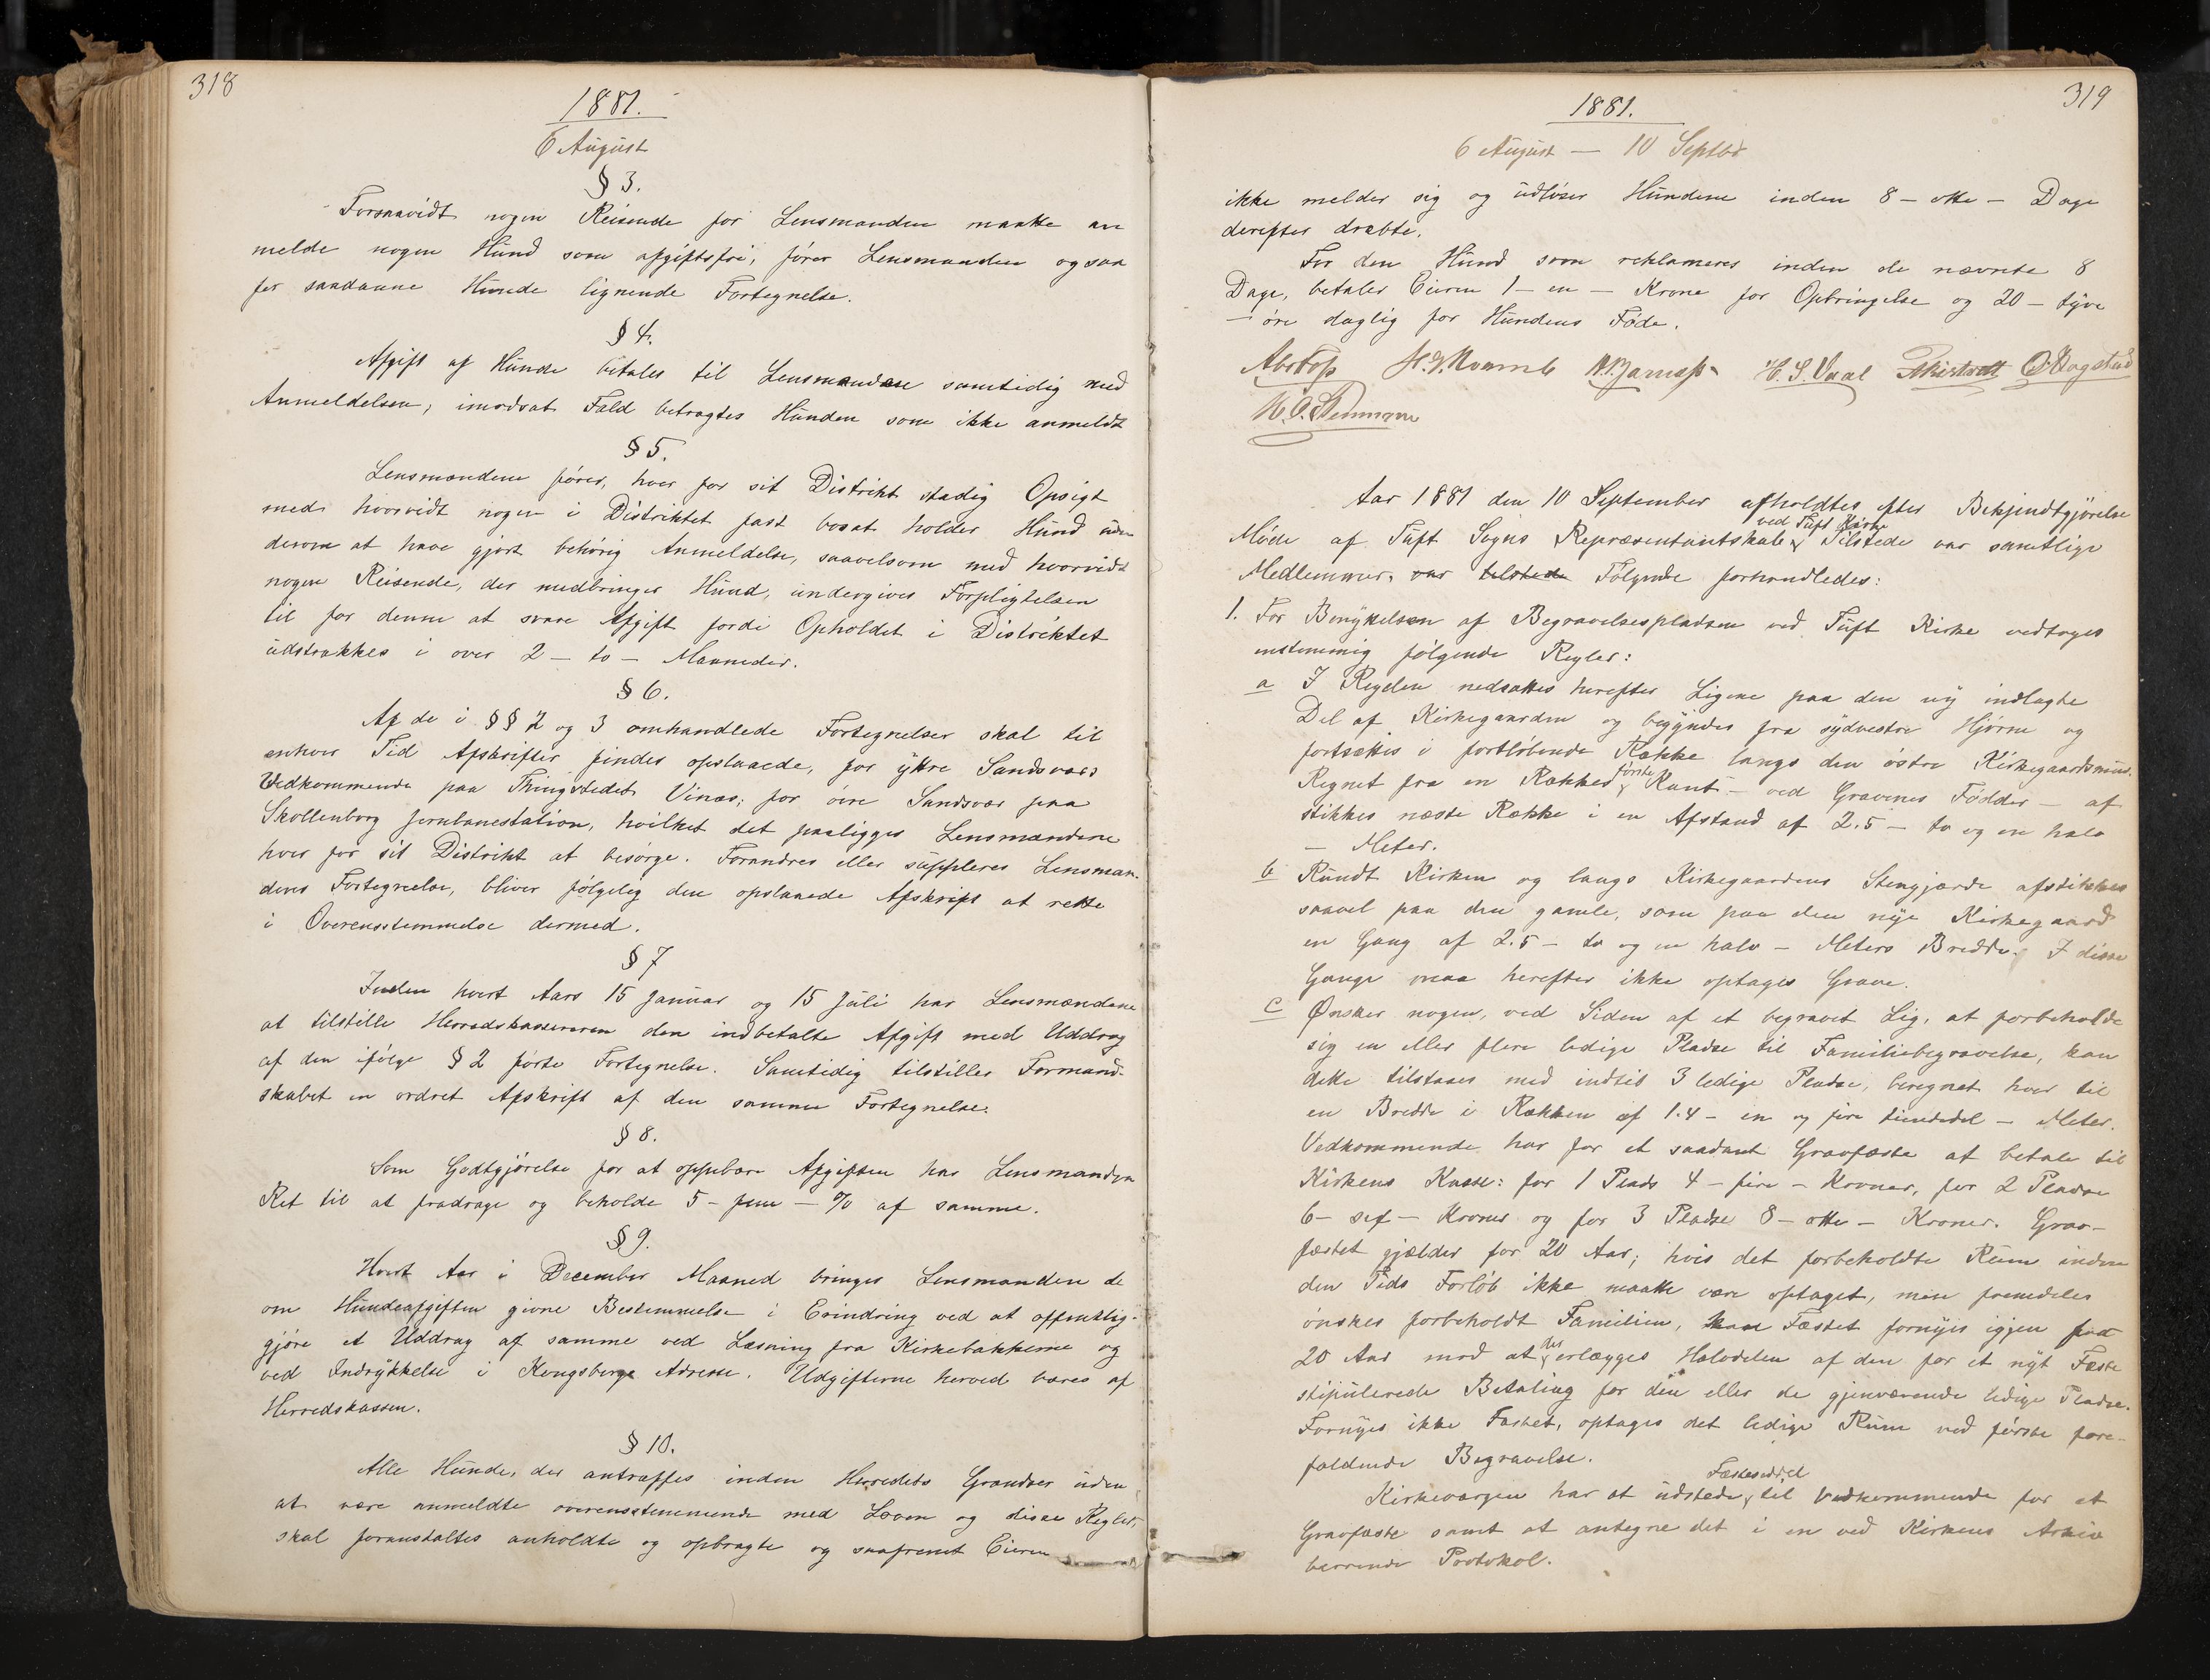 318
1881.
6 August
§ 3.
Forsaavidt nogen Reisende for Lensmanden maatte an
melde nogen Hund som afgiftsfri, fører Lensmanden ogsaa
for saadanne Hunde lignende Fortegnelse.
§ 4.
Afgift af Hunde betales til Lensmanden samtidig med
Anmeldelsen, imodsat Fald betragtes Hunden som ikke anmeldt
§ 5.
Lensmændene fører, hver for sit Distrikt stadig Opsigt
med hvorvidt nogen i Distriktet fast bosat holder Hund uden
desom at have gjort behørig Anmeldelse, saavelsom med hvorvidt
nogen Reisende, der medbringer Hund, undergives Forpligtelsen
til for denne at svare Afgift fordi Opholdet i Distriktet
udstrækkes i over 2 – to – Maaneder.
§ 6.
Af de i §§ 2 og 3 omhandlede Fortegnelser skal til
enhver Tid Afskrifter findes opslaaede, for ytre Sandsværs
Vedkommende paa Thingstedet Vinæs; for øvre Sandsvær paa
Skollenborg Jernbanestation, hvilket det paaligger Lensmændene
hver for sit Distrikt at besørge. Forandres eller suppleres Lensman-
dens Fortegnelse, bliver følgelig den opslaaede Afskrift at rette
i Overensstemmelse dermed.
§ 7
Inden hvert Aars 15 Januar og 15 Juli har Lensmændene
at tilstille Herredskassereren den indbetalte Afgift med Uddrag
af den ifølge § 2 førte Fortegnelse. Samtidig tilstilles Formand-
skabet en ordret Afskrift af den samme Fortegnelse.
§ 8.
Som Godtgjørelse for at oppebære Afgiften har Lensmanden
Ret til at fradrage og beholde 5 – fem – % af samme.
§ 9.
Hvert Aar i December Maaned bringer Lensmanden de
om Hundeafgiften givne Bestemmelse i Erindring ved at offentlig-
gjøre et Uddrag af samme ved Læsning fra Kirkebakkerne og
ved Indrykkelse i Kongsbergs Adresse. Udgifterne herved bæres af
Herredskassen.
§ 10.
Alle Hunde, der antræffes inden Herredets Grændser uden
at være anmeldte overensstemmende med Loven og disse Regler,
skal foranstaltes anholdte og opbragte og saafremt Eieren
319
1881.
6 August — 10 Septbr
ikke melder sig og udløser Hundene inden 8 – otte – Dage
derefter dræbte.
For den Hund som reklameres inden de nævnte 8
Dage, betaler Eieren 1 – en – Krone for Opbringelse og 20 – tyve
– øre daglig for Hundens Føde.
H. S. Vaal O. Hagstad
Aar 1881 den 10 September afholdtes efter Bekjendtgjørelse
ved Tuft Kirke
Møde af Tuft Sogns Repræsentantskab Tilstede var samtlige
Medlemmer, var tilstede Følgende forhandledes:
1. For Benyttelsen af Begravelsespladsen ved Tuft Kirke vedtoges
enstemmig følgende Regler:
a I Regelen nedsættes herefter Ligene paa den ny indlagte
Del af Kirkegaarden og begyndes fra sydvestre Hjørne og
fortsættes i fortløbende Række langs den østre Kirkegaardsmur.
Regnet fra en Rækkes første Kant – ved Gravenes Fødder – af
stikkes næste Række i en Afstand af 2.5 – to og en halv
– Meter.
b Rundt Kirken og langs Kirkegaardens Stengjærde afstikkes
saavel paa den gamle, som paa den nye Kirkegaard
en Gang af 2.5 – to og en halv – Meters Bredde. I disse
Gange maa herefter ikke optages Grave.
c Ønsker nogen, ved Siden af et begravet Lig, at forbeholde
sig en eller flere ledige Pladse til Familiebegravelse, kan
dette tilstaaes med indtil 3 ledige Pladse, beregnet hver til
en Bredde i Rækken af 1.4 – en og fire tiendedel – Meter.
Vedkommende har for et saadant Gravfæste at betale til
Kirkens Kasse: for 1 Plads 4 – fire – Kroner, for 2 Pladse
6 – sex – Kroner og for 3 Pladse 8 – otte – Kroner. Grav-
fæstet gjælder for 20 Aar; hvis det forbeholdte Rum inden
den Tids Forløb ikke maatte være optaget, men fremdeles
ønskes forbeholdt Familien, kan Fæstet fornyes igjen paa
20 Aar mod at der erlægges Halvdelen af den for et nyt Fæste
stipulerede Betaling for den eller de gjenværende ledige Pladse.
Fornyes ikke Fæstet, optages det ledige Rum ved første fore-
faldende Begravelse.
Fæsteseddel
Kirkeværgen har at udstede til Vedkommende for et
Gravfæste samt at antegne det i en ved Kirkens Arkiv
beroende Protokol.